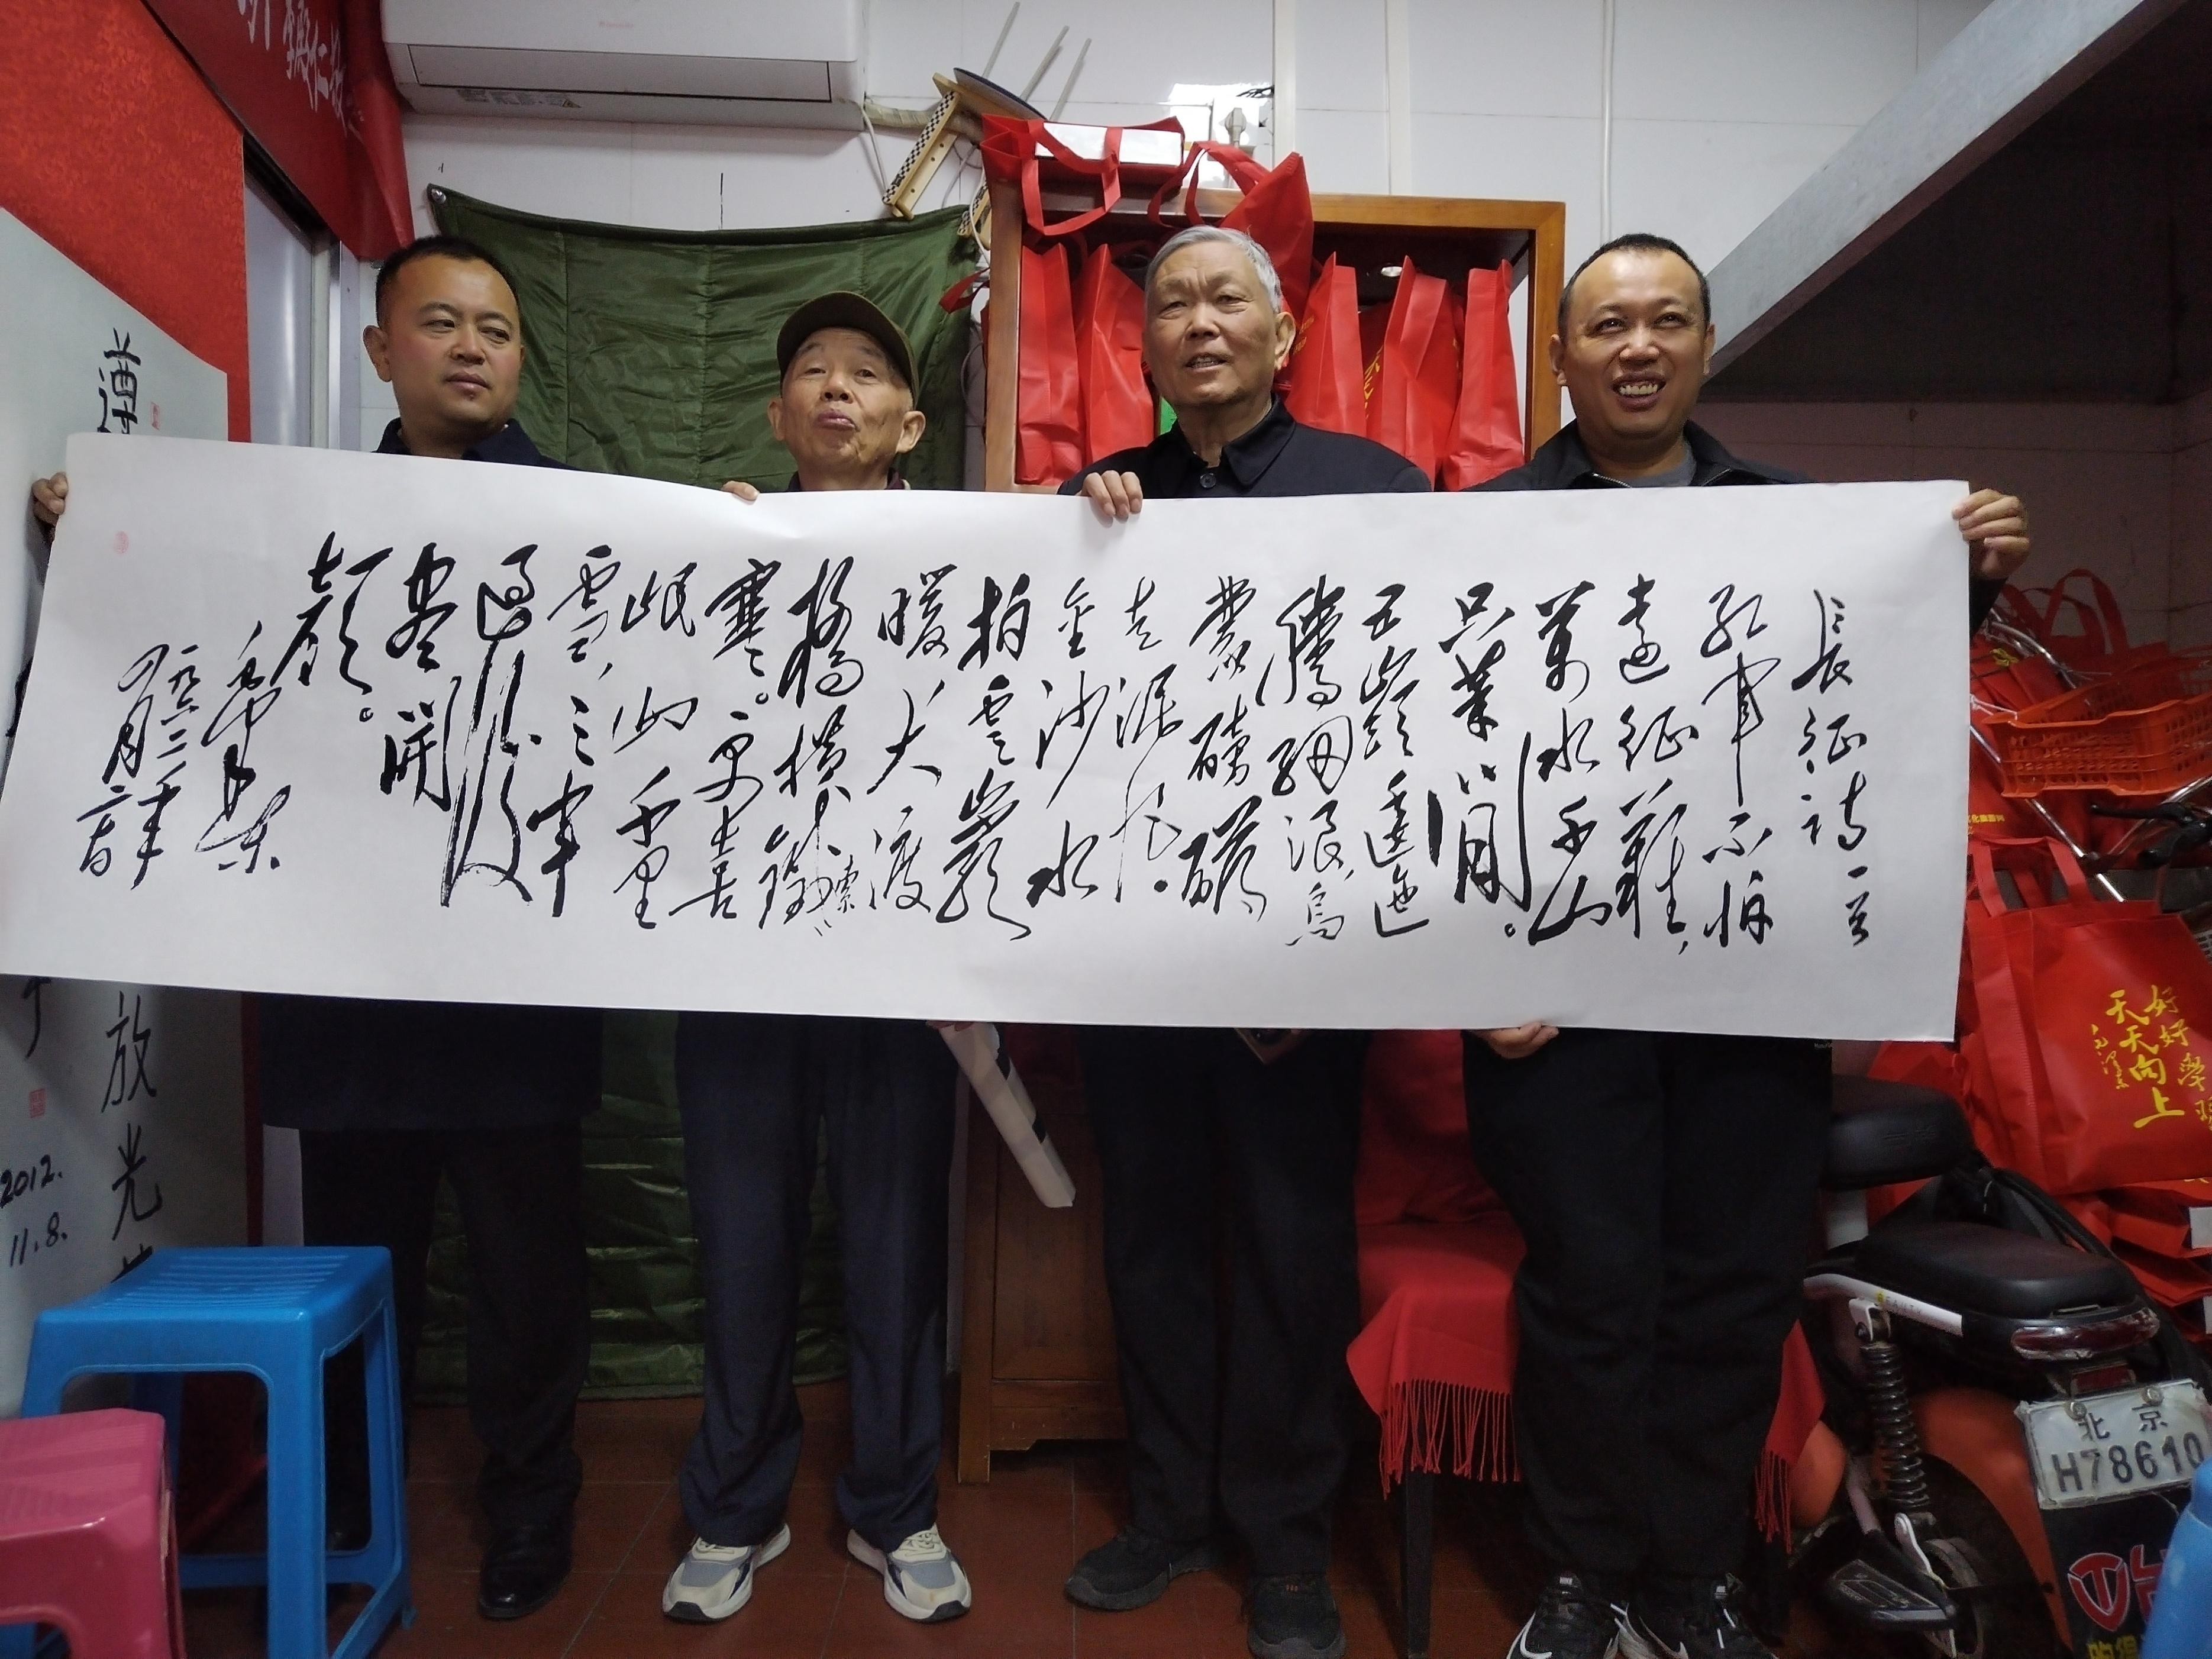 長征詩一首
紅軍不怕
遠征難，
萬水千山
只等閒。
五嶺逶迤
騰細浪，烏
蒙磅礴
走泥丸。
金沙水
拍雲巖
暖，大渡
橋橫鐵索
寒。更喜
岷山千里
雪，三軍
過後
盡開
顏。
毛澤東
一九六二年
四月廿日
放
光
2012.
11.8.
好好學習
天天向上
毛澤東
北京
H78610